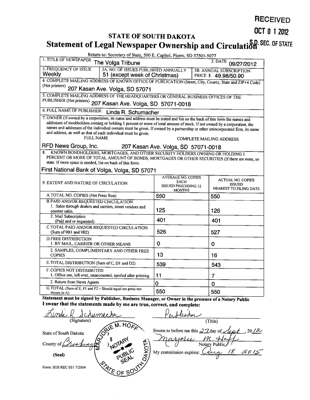 RECEIVED
OCT 01 2012
S.D. SEC. OF STATE
STATE OF SOUTH DAKOTA
Statement of Legal Newspaper Ownership and Circulation
Return to: Secretary of State, 500 E. Capitol, Pierre, SD 57501-5077
1. TITLE OF NEWSPAPER The Volga Tribune
2. DATE 09/27/2012
3. FREQUENCY OF ISSUE Weekly
3A. NO. OF ISSUES PUBLISHED ANNUALLY 51 (except week of Christmas)
3B. ANNUAL SUBSCRIPTION PRICE $ 49.98/50.90
4. COMPLETE MAILING ADDRESS OF KNOWN OFFICE OF PUBLICATION (Street, City, County, State and ZIP+4 Code)
(Not printers) 207 Kasan Ave. Volga, SD 57071
5. COMPLETE MAILING ADDRESS OF THE HEADQUARTERS OR GENERAL BUSINESS OFFICES OF THE
PUBLISHER (Not printers) 207 Kasan Ave. Volga, SD 57071-0018
6. FULL NAME OF PUBLISHER Linda R. Schumacher
7. OWNER (If owned by a corporation, its name and address must be stated and
FULL NAME COMPLETE MAILING ADDRESS
RFD News Group, Inc. 207 Kasan Ave. Volga, SD 57071-0018
8. KNOWN BONDHOLDERS, MORTGAGES, AND OTHER SECURITY HOLDERS OWNING OR HOLDING 1
PERCENT OR MORE OF TOTAL AMOUNT OF BONDS, MORTGAGES OR OTHER SECURITIES (If there are none, so
state. If more space is needed, list on back of this form.)
First National Bank of Volga, Volga, SD 57071
9. EXTENT AND NATURE OF CIRCULATION
AVERAGE NO. COPIES EACH ISSUED PRECEDING 12 MONTHS
ACTUAL NO. COPIES ISSUED NEAREST TO FILING DATE
A. TOTAL NO. COPIES (Net Press Run) 550 550
B. PAID AND/OR REQUESTED CIRCULATION
1. Sales through dealers and carriers, street vendors and
counter sales. 125 126
2. Mail Subscription
(Paid and or requested) 401 401
C. TOTAL PAID AND/OR REQUESTED CIRCULATION
(Sum of 9B1 and 9B2) 526 527
D. FREE DISTRIBUTION
1. BY MAIL, CARRIER OR OTHER MEANS 0 0
2. SAMPLES, COMPLIMENTARY AND OTHER FREE
COPIES 13 16
E. TOTAL DISTRIBUTION (Sum of C, D1 and D2) 539 543
F. COPIES NOT DISTRIBUTED
1. Office use, left over, unaccounted, spoiled after printing 11 7
2. Return from News Agents 0 0
G. TOTAL (Sum of E, F1 and F2 - Should equal net press run
shown in A) 550 550
Statement must be signed by Publisher, Business Manager, or Owner in the presence of a Notary Public
I swear that the statements made by me are true, correct, and complete:
Linda R Schumacher Publisher
(Signature) (Title)
State of South Dakota
County of Brookings
(Seal)
MARJORIE M. HOFF
NOTARY PUBLIC
SEAL
STATE OF SOUTH DAKOTA
Sworn to before me this 27 day of Sept 2012
Marjorie M Hoff
Notary Public
My commission expires: Aug 18 2015
Form: SOS REC 051 7/2004